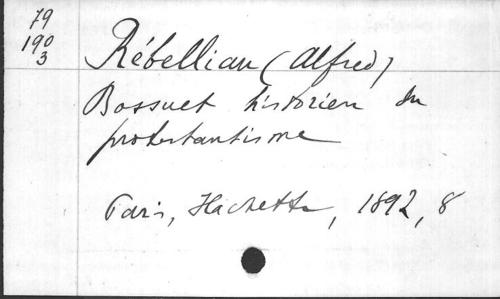 79
190
3
Rébelliau (Alfred)
Bossuet historien du
protestantisme
Paris, Hachette, 1892, 8